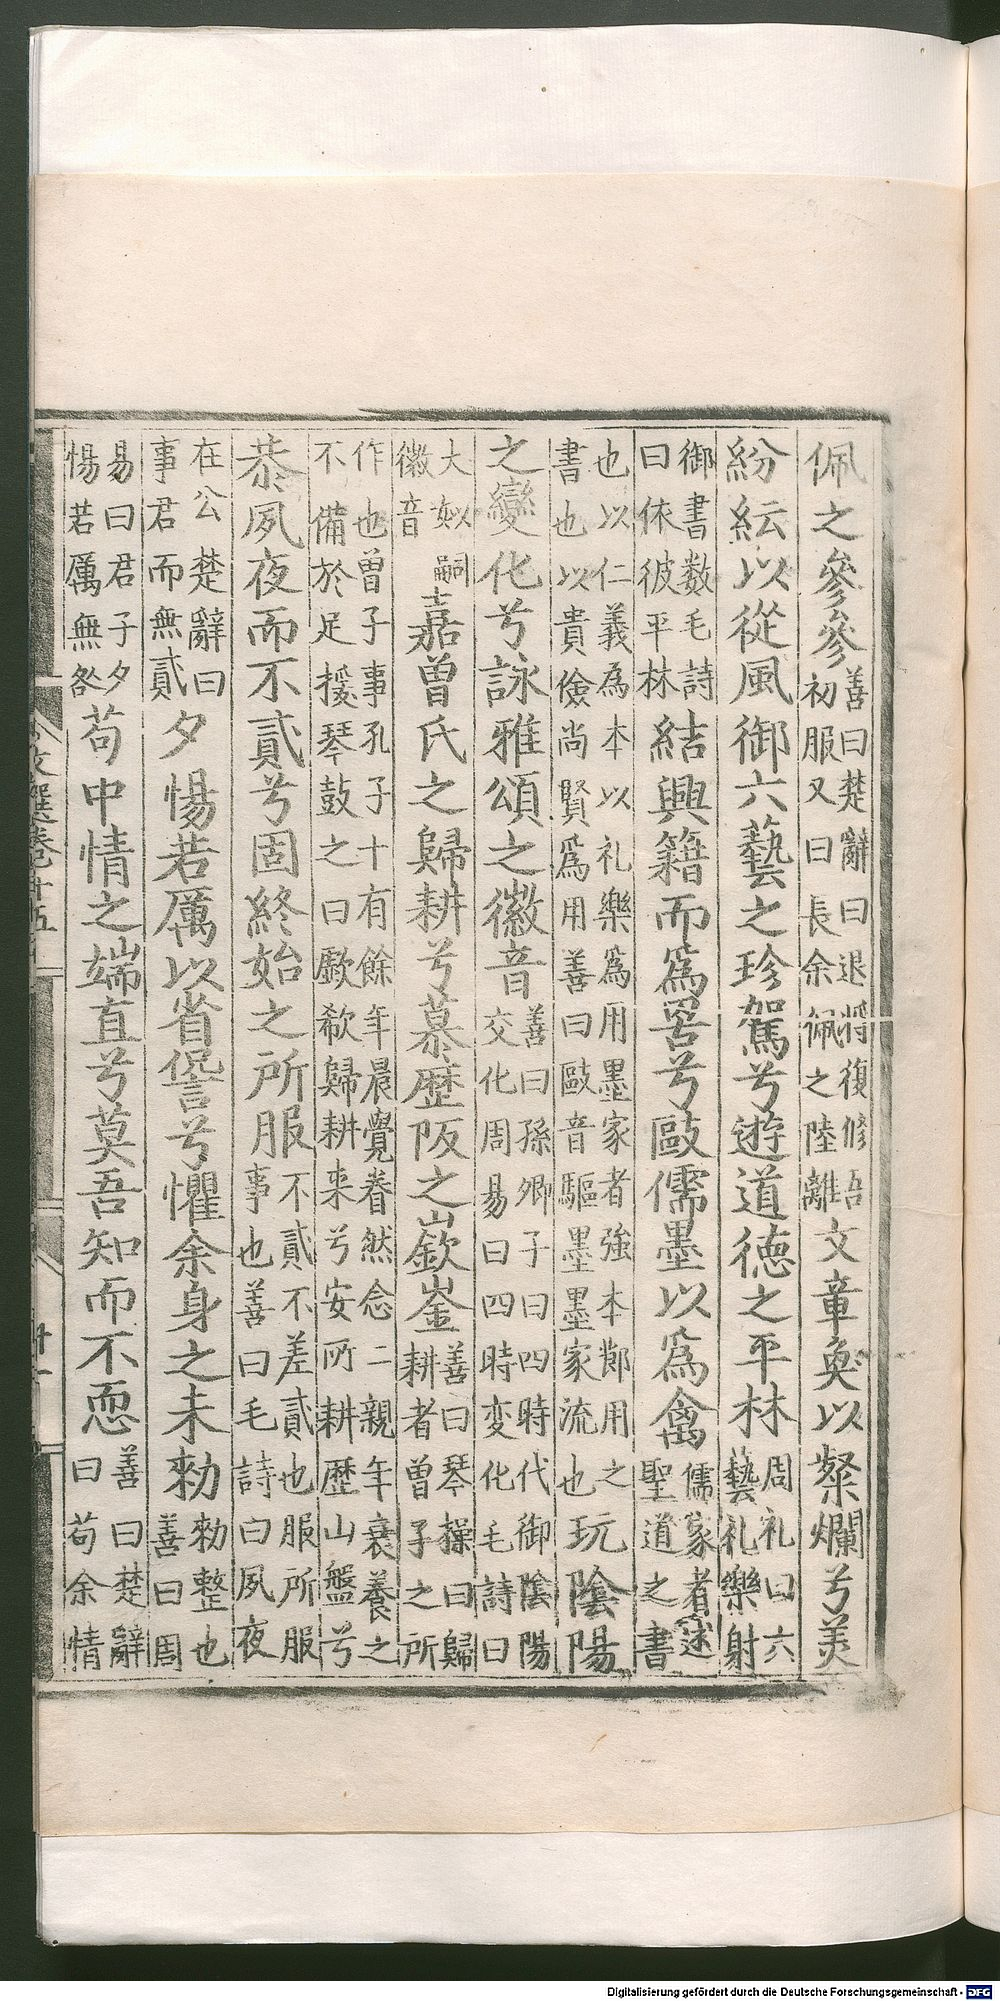 佩之參參善曰楚辭曰退將復修吾初服又曰長余佩之陸離文章奐以粲爛兮美
紛紜以從風御六藝之珍駕兮遊道德之平林周礼曰六藝礼樂射
御書数毛詩曰依彼平林結典籍而爲罟兮敺儒墨以爲禽儒家者述聖道之書
也以仁義為本以礼樂爲用墨家者強本節用之書也以貴儉尚賢爲用善曰敺音驅墨墨家流也玩陰陽
之變化兮詠雅頌之徽音善曰孫卿子曰四時代御陰陽交化周易曰四時変化毛詩曰
大姒嗣徽音嘉曾氏之歸耕兮慕歷阪之嶔崟善曰琴操曰歸耕者曾子之所
作也曾子事孔子十有餘年晨覺眷然念二親年衰養之不備於是援琴鼓之曰歍欷歸耕来兮安所耕歷山盤兮
恭夙夜而不貳兮固終始之所服不貳不差貳也服所服事也善曰毛詩曰夙夜
在公楚辭曰事君而無貳夕惕若厲以省諐兮懼余身之未勑勑整也善曰周
易曰君子夕惕若厲無咎苟中情之端直兮莫吾知而不恧善曰楚辭曰苟余情
文選卷十五
Digitalisierung gefördert durch die Deutsche Forschungsgemeinschaft - DFG